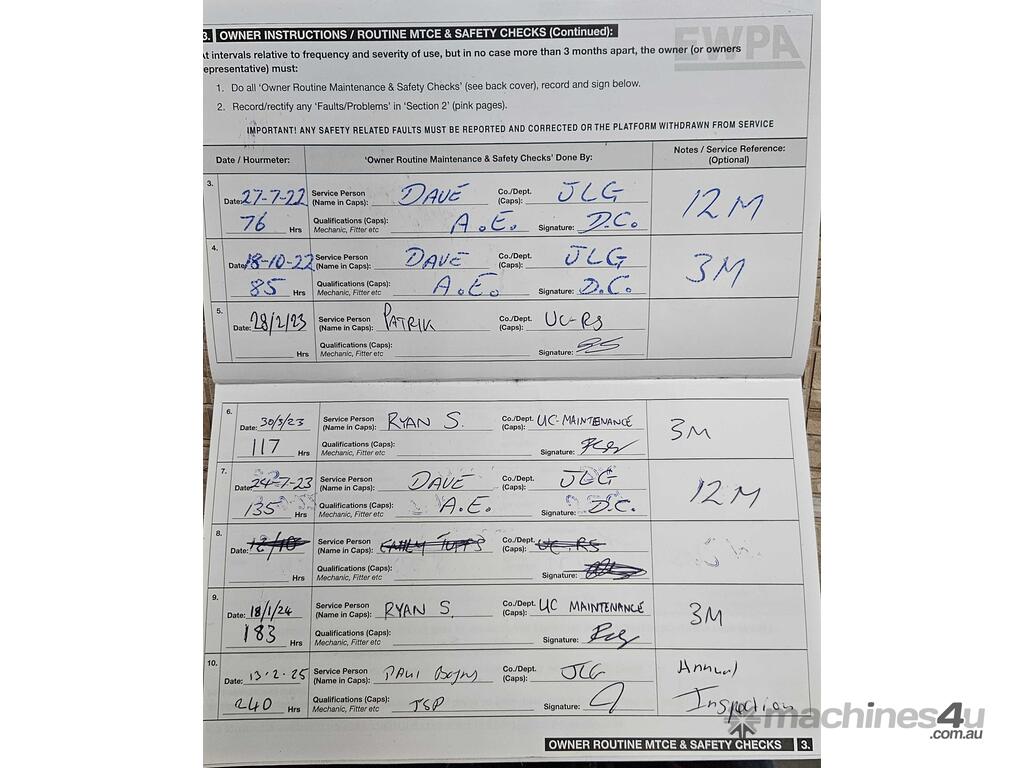 3. OWNER INSTRUCTIONS / ROUTINE MTCE & SAFETY CHECKS (Continued):
EWPA
At intervals relative to frequency and severity of use, but in no case more than 3 months apart, the owner (or owners
representative) must:
1. Do all 'Owner Routine Maintenance & Safety Checks' (see back cover), record and sign below.
2. Record/rectify any 'Faults/Problems' in 'Section 2' (pink pages).
IMPORTANT! ANY SAFETY RELATED FAULTS MUST BE REPORTED AND CORRECTED OR THE PLATFORM WITHDRAWN FROM SERVICE
Date / Hourmeter: 'Owner Routine Maintenance & Safety Checks' Done By: Notes / Service Reference:
(Optional)
3.
Date: 27-7-22 Service Person (Name in Caps): DAVE Co./Dept. (Caps): JLG 12M
76 Hrs Qualifications (Caps): Mechanic, Fitter etc A.E. Signature: D.C.
4.
Date: 18-10-22 Service Person (Name in Caps): DAVE Co./Dept. (Caps): JLG 3M
85 Hrs Qualifications (Caps): Mechanic, Fitter etc A.E. Signature: D.C.
5.
Date: 28/2/23 Service Person (Name in Caps): PATRIK Co./Dept. (Caps): UC-RS
Hrs Qualifications (Caps): Mechanic, Fitter etc Signature:
6.
Date: 30/5/23 Service Person (Name in Caps): RYAN S. Co./Dept. (Caps): UC-MAINTENANCE 3M
117 Hrs Qualifications (Caps): Mechanic, Fitter etc Signature:
7.
Date: 24-7-23 Service Person (Name in Caps): DAVE Co./Dept. (Caps): JLG 12M
135 Hrs Qualifications (Caps): Mechanic, Fitter etc A.E. Signature: D.C.
8.
Date: 12/10 Service Person (Name in Caps): EMILY Co./Dept. (Caps): UC-RS
Hrs Qualifications (Caps): Mechanic, Fitter etc Signature:
9.
Date: 18/1/24 Service Person (Name in Caps): RYAN S Co./Dept. (Caps): UC MAINTENANCE 3M
183 Hrs Qualifications (Caps): Mechanic, Fitter etc Signature:
10.
Date: 13-2-25 Service Person (Name in Caps): PAUL Co./Dept. (Caps): JLG Annual
240 Hrs Qualifications (Caps): Mechanic, Fitter etc JSP Signature: Inspection
machines4u
.com.au
OWNER ROUTINE MTCE & SAFETY CHECKS 3.